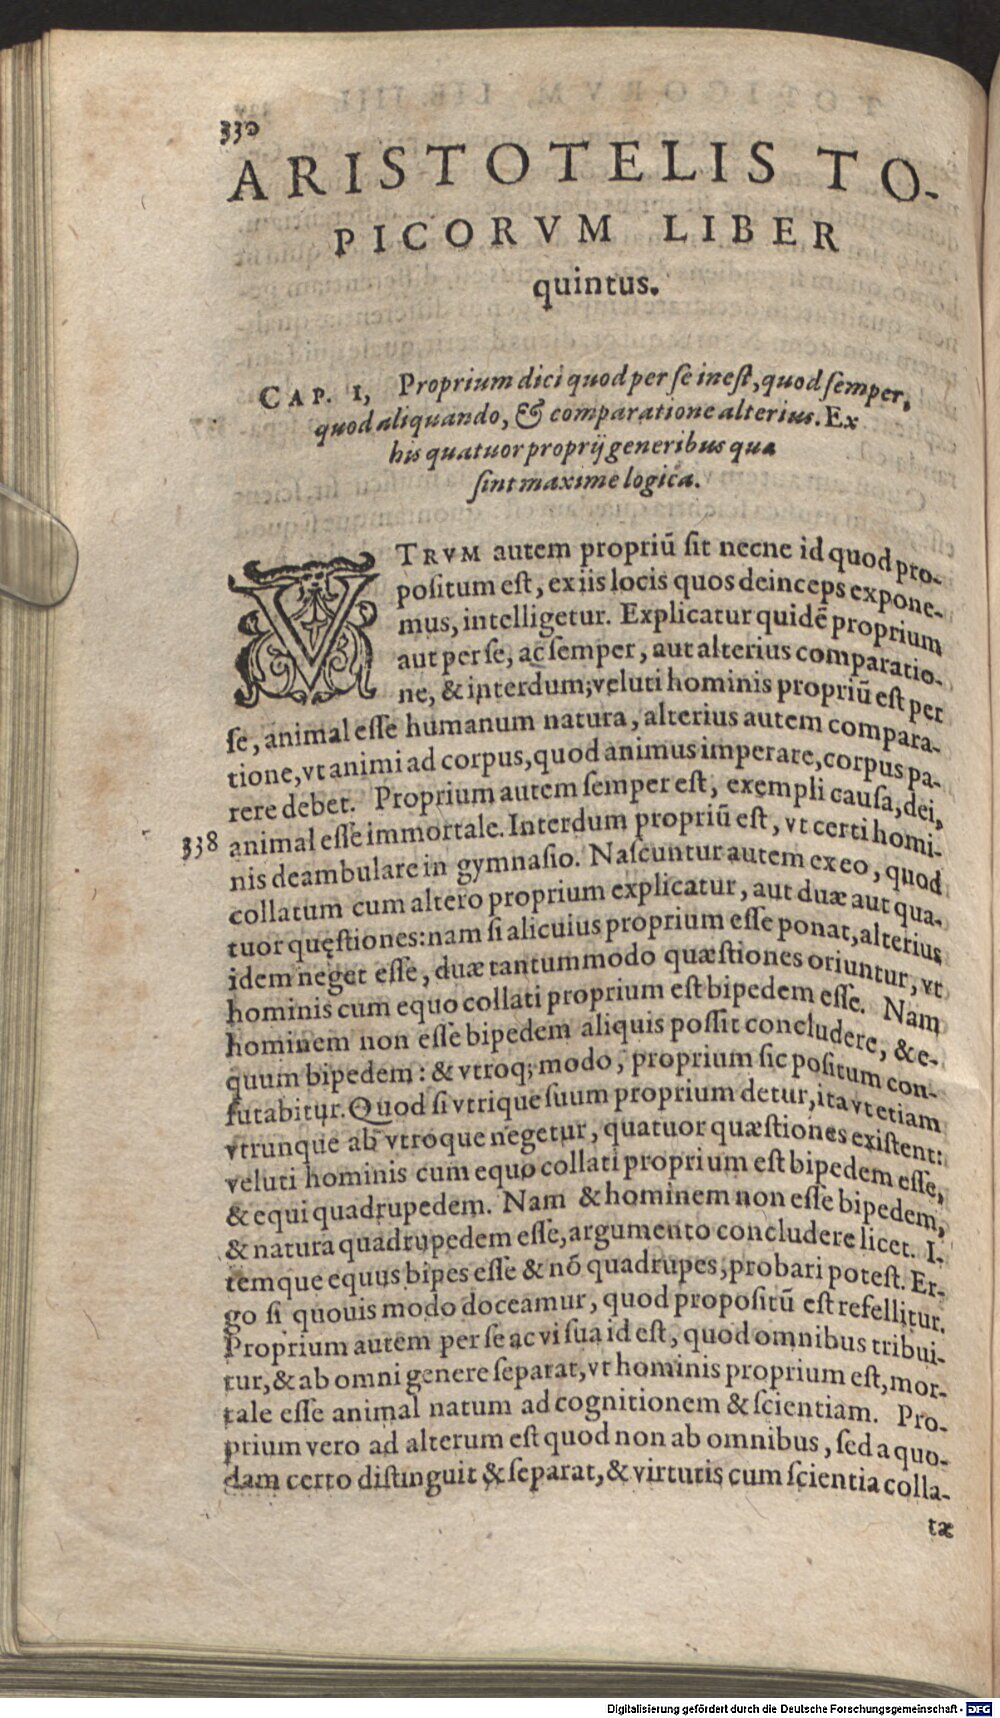 330
ARISTOTELIS TO-
PICORVM LIBER
quintus.
CAP. I, Proprium dici quod per se inest, quod semper,
quod aliquando, & comparatione alterius. Ex
his quatuor proprij generibus quæ
sint maxime logica.
VTRVM autem propriũ sit necne id quod pro-
positum est, ex iis locis quos deinceps expone-
mus, intelligetur. Explicatur quidẽ proprium
aut per se, ac semper, aut alterius comparatio-
ne, & interdum; veluti hominis propriũ est per
se, animal esse humanum natura, alterius autem compara-
tione, vt animi ad corpus, quod animus imperare, corpus pa-
rere debet. Proprium autem semper est, exempli causa, dei,
338 animal esse immortale. Interdum propriũ est, vt certi homi-
nis deambulare in gymnasio. Nascuntur autem ex eo, quod
collatum cum altero proprium explicatur, aut duæ aut qua-
tuor quęstiones: nam si alicuius proprium esse ponat, alterius
idem neget esse, duæ tantummodo quæstiones oriuntur, vt
hominis cum equo collati proprium est bipedem esse. Nam
hominem non esse bipedem aliquis possit concludere, & e-
quum bipedem: & vtroq; modo, proprium sic positum con-
futabitur. Quod si vtrique suum proprium detur, ita vt etiam
vtrunque ab vtroque negetur, quatuor quæstiones existent:
veluti hominis cum equo collati proprium est bipedem esse,
& equi quadrupedem. Nam & hominem non esse bipedem,
& natura quadrupedem esse, argumento concludere licet. I-
temque equus bipes esse & nõ quadrupes, probari potest. Er-
go si quouis modo doceamur, quod propositũ est refellitur.
Proprium autem per se ac vi sua id est, quod omnibus tribui-
tur, & ab omni genere separat, vt hominis proprium est, mor-
tale esse animal natum ad cognitionem & scientiam. Pro-
prium vero ad alterum est quod non ab omnibus, sed a quo-
dam certo distinguit & separat, & virtutis cum scientia colla-
tæ
Digitalisierung gefördert durch die Deutsche Forschungsgemeinschaft - DFG